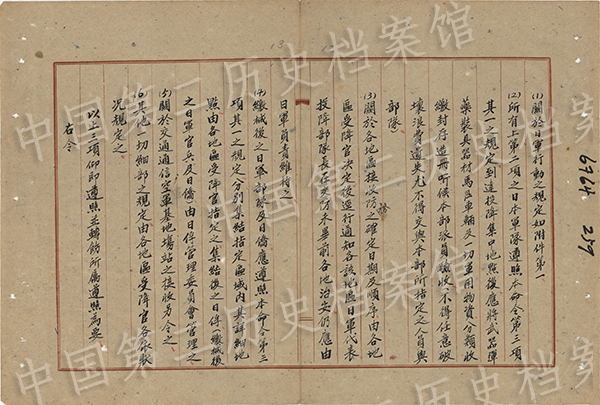 (1)關於日軍行動之規定如附件第一
(2)所有上第二項之日本軍隊遵照本命令第三項
其一之規定到達投降集中地點後應將武器彈
藥裝具器材馬匹車輛及一切軍用物資分類收
繳封存造冊聽候本部派員驗收不得任意破
壞浪費遺失尤不得交與本部所指定之人員與
部隊
(3)關於各地區接收防之確定日期及順序由各地
區受降官決定後逕行通知各該地區日軍代表
投降部隊長在交防未畢前各地治安仍應由
日軍負責維持之
(4)繳械後之日軍部隊及日僑應遵照本命令第三
項其一之規定分別集結指定區域內其詳細地
點由各地區受降官指定之集結後之日俘(繳械後
之日軍官兵)及日僑由日俘管理委員會管理之
(5)關於交通通信空軍基地場站之接收另令之
(6)其他一切細部之規定由各地區受降官各依狀
況規定之
以上三項仰即遵照並轉飭所屬遵照為要
右令
13
6764
中国第二历史档案馆
中国第二历史档案馆
中国第二历史档案馆